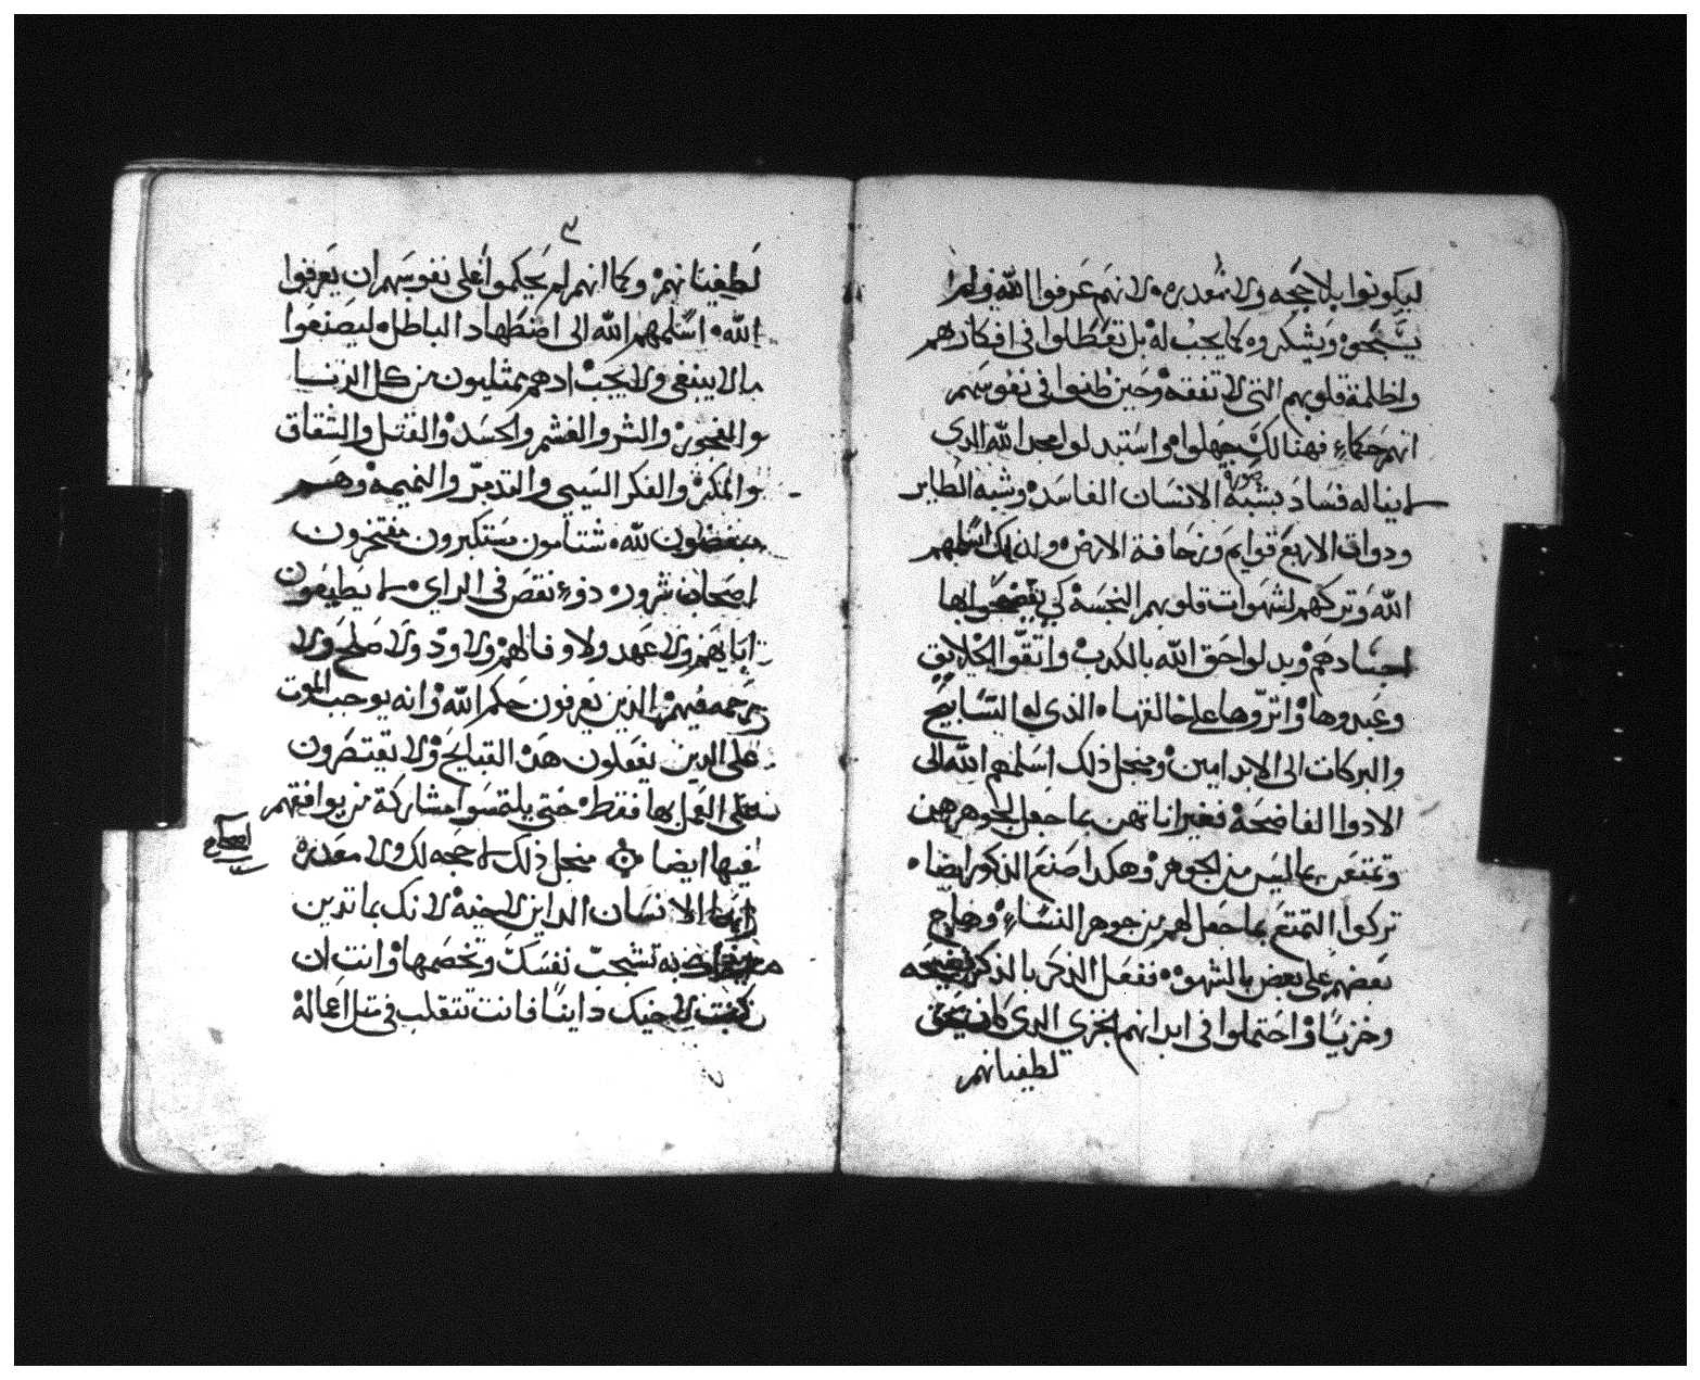 ليكونوا بلا حجه ولا معدره ۰ لانهم عرفوا الله ولم
يسبحوه ويشكروه كما يجب له بل تعطلوا في افكارهم
واظلمة قلوبهم التي لا تفقه وحين ظنوا في نفوسهم
انهم حكماء فهنالك جهلوا واستبدلوا مجد الله الدي
لا يناله فساد بشبه صورة الانسان الفاسده وشبه الطاير
ودوات الاربع قوايم وزحافة الارض ولدلك اسلمهم
الله وتركهم لشهوات قلوبهم النجسة كي يفضحوا بها
اجسادهم وبدلوا حق الله بالكدب واتقوا الخلايق
وعبدوها واتروها على خالقها ۰ الذي له التسابيح
والبركات الى الابد امين ومنجل ذلك اسلمهم الله الى
الادوا الفاضحة فغير اناتهن بما جعل لجوهرهن
وتمتعن بما ليس من الجوهر وهكدا صنع الذكور ايضا ۰
تركوا التمتع بما جعل لهم من جوهر النساء وهاج
بعضهم على بعض بالشهوة ففعل الذكر بالذكر فضيحه
وخزيا واحتملوا في ابدانهم الخزي الدي كان يحق
لطغيانهم
٣
لطغيانهم وكما انهم لم يحكموا على نفوسهم ان يعرفوا
الله ۰ اسلمهم الله الى اضطهاد الباطل ليصنعوا
ما لا ينبغي ولا يجب ادهم ممتليون من كل الزنا
والفجور والشر والغشم والحسد والقتل والشقاق
والمكر والفكر السيى والتدمر والنميمة وهم
مبغضون لله ۰ شتامون مستكبرون مفتخرون
اصحاب شرور ۰ ذوء نقص في الراي ۰ لا يطيعون
ابايهم ولا عهد ولا وفا لهم ولا ود ولا صلح ولا
رحمه فيهم الدين يعرفون حكم الله وانه يوجب الموت
على الدين يفعلون هده القبايح ولا يقتصرون
على العمل بها فقط حتي يلتمسوا مشاركة من يوافقهم
فيها ايضا ۰ منجل ذلك لا حجه لك ولا معدره
اصحاح
ايها الانسان الداين لاخيه لانك بما تدين
به تشجب نفسك وتخصمها وانت ان
كنت لاخيك داينا فانت تتقلب في متل اعماله